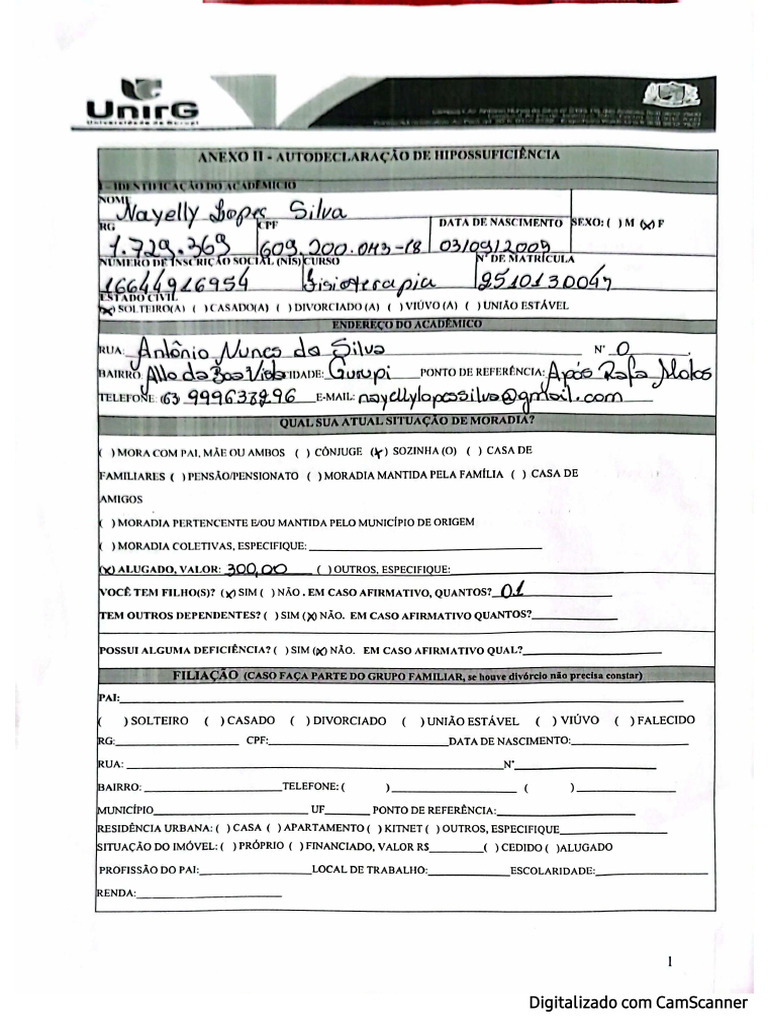 UnirG
Universidade de Gurupi
ANEXO II - AUTODECLARAÇÃO DE HIPOSSUFICIÊNCIA
I - IDENTIFICAÇÃO DO ACADÊMICIO
NOME Nayelly Lopes Silva
RG CPF DATA DE NASCIMENTO SEXO: ( ) M (x) F
1.729.369 609.200.043-18 03/09/2005
NÚMERO DE INSCRIÇÃO SOCIAL (NIS) CURSO Nº DE MATRÍCULA
16644916954 Fisioterapia
ESTADO CIVIL
(x) SOLTEIRO(A) ( ) CASADO(A) ( ) DIVORCIADO (A) ( ) VIÚVO (A) ( ) UNIÃO ESTÁVEL
ENDEREÇO DO ACADÊMICO
RUA: Antônio Nunes da Silva Nº 0
BAIRRO Alto da Boa Vista CIDADE: Gurupi PONTO DE REFERÊNCIA: Após Rafa Motos
TELEFONE: (63 E-MAIL: nayellylopessilva@gmail.com
QUAL SUA ATUAL SITUAÇÃO DE MORADIA?
( ) MORA COM PAI, MÃE OU AMBOS ( ) CÔNJUGE (x) SOZINHA (O) ( ) CASA DE
FAMILIARES ( ) PENSÃO/PENSIONATO ( ) MORADIA MANTIDA PELA FAMÍLIA ( ) CASA DE
AMIGOS
( ) MORADIA PERTENCENTE E/OU MANTIDA PELO MUNICÍPIO DE ORIGEM
( ) MORADIA COLETIVAS, ESPECIFIQUE:
(x) ALUGADO, VALOR: 300,00 ( ) OUTROS, ESPECIFIQUE:
VOCÊ TEM FILHO(S)? (x) SIM ( ) NÃO . EM CASO AFIRMATIVO, QUANTOS? 01
TEM OUTROS DEPENDENTES? ( ) SIM (x) NÃO. EM CASO AFIRMATIVO QUANTOS?
POSSUI ALGUMA DEFICIÊNCIA? ( ) SIM (x) NÃO. EM CASO AFIRMATIVO QUAL?
FILIAÇÃO (CASO FAÇA PARTE DO GRUPO FAMILIAR, se houve divórcio não precisa constar)
PAI:
( ) SOLTEIRO ( ) CASADO ( ) DIVORCIADO ( ) UNIÃO ESTÁVEL ( ) VIÚVO ( ) FALECIDO
RG: CPF: DATA DE NASCIMENTO:
RUA: Nº
BAIRRO: TELEFONE: ( ) ( )
MUNICÍPIO UF PONTO DE REFERÊNCIA:
RESIDÊNCIA URBANA: ( ) CASA ( ) APARTAMENTO ( ) KITNET ( ) OUTROS, ESPECIFIQUE
SITUAÇÃO DO IMÓVEL: ( ) PRÓPRIO ( ) FINANCIADO, VALOR R$ ( ) CEDIDO ( ) ALUGADO
PROFISSÃO DO PAI: LOCAL DE TRABALHO: ESCOLARIDADE:
RENDA:
1
Digitalizado com CamScanner